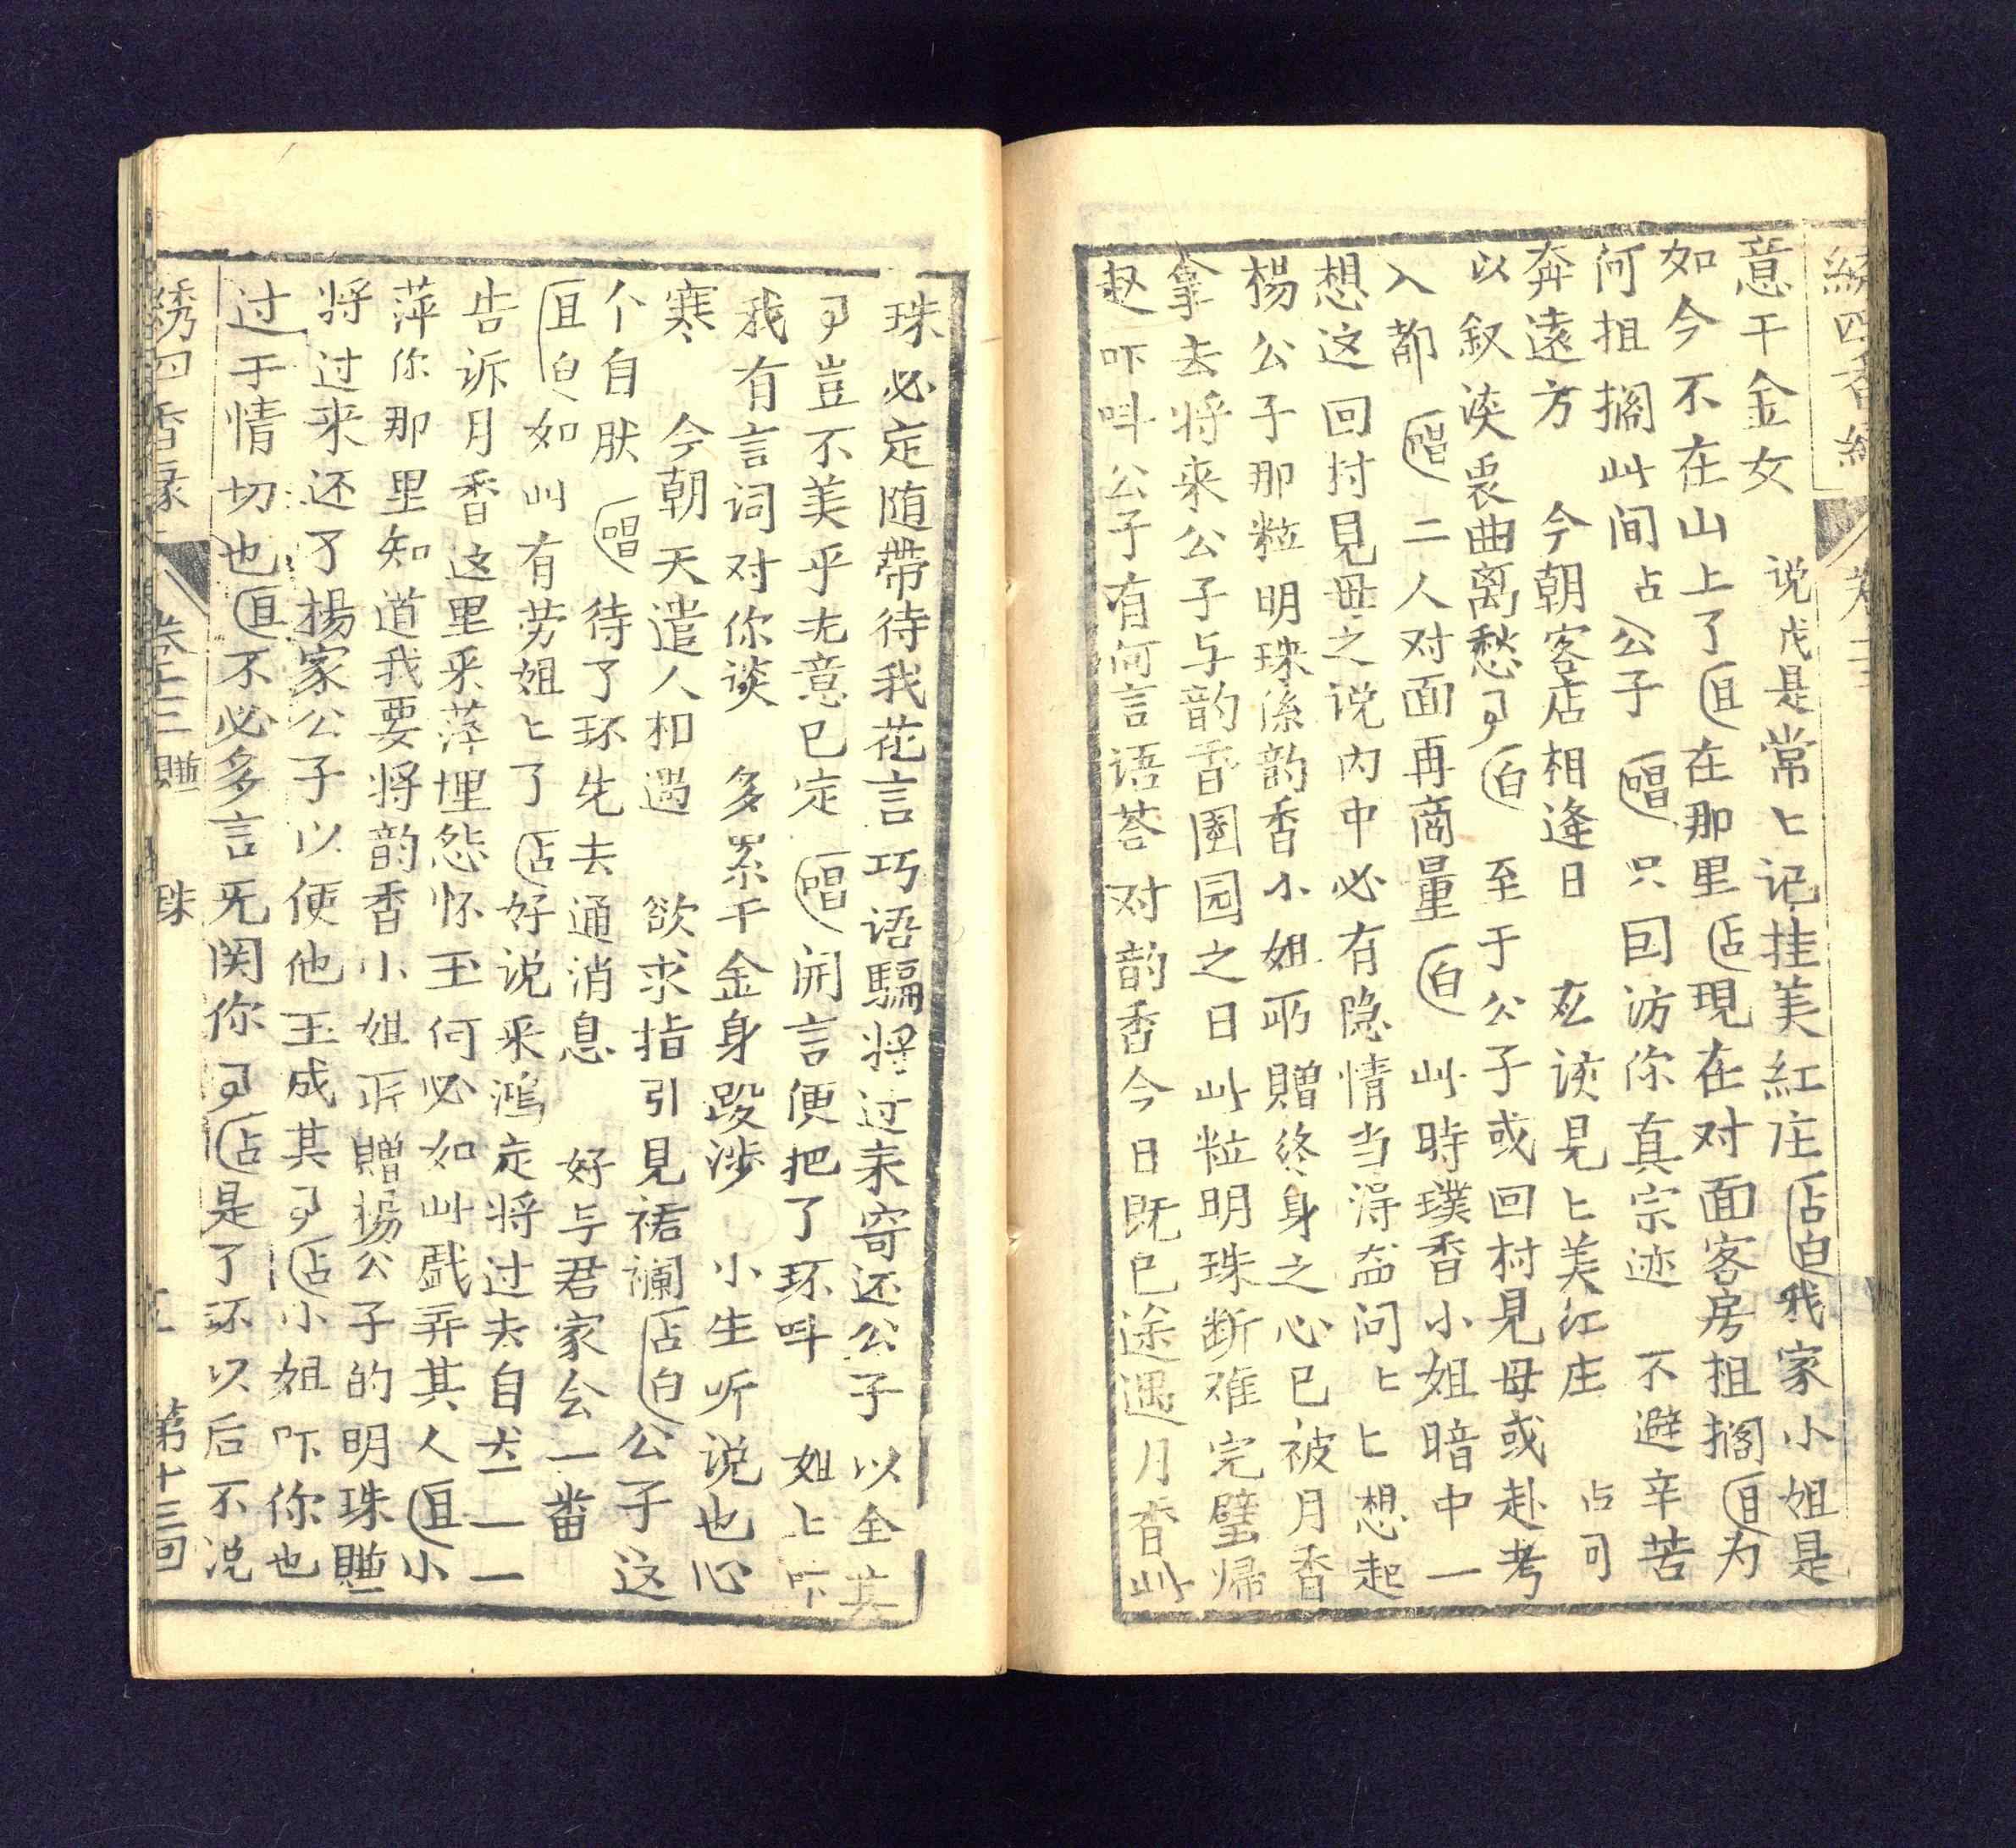 绣四香缘 卷十三
意千金女 说戊是常匕记挂美紅庄 占白 我家小姐是
如今不在山上了 且 在那里 占 現在对面客房担搁 且 为
何担搁此间 占 公子 唱 只因访你真宗迹 不避辛苦
奔遠方 今朝客店相逢日 谈見匕美红庄 占 可
以叙淡衷曲离愁 白 至于公子或回村見母或赴考
入都 唱 二人对面再商量 白 此時璞香小姐暗中一
想这回村見母之说内中必有隐情当淂盘问匕匕想起
楊公子那粒明珠係韵香小姐所贈终身之心已被月香
拿去将来公子与韵香團园之日此粒明珠断难完璧帰
赵吓呌公子有何言语荅对韵香今日既已途遇月香此
珠必定随帶待我花言巧语騙将过来寄还公子以全其
豈不美乎尤意已定 唱 開言便把了环呌 姐上吓
我有言词对你谈 多累千金身跋涉 小生听说也心
寒 今朝天遣人相遇 欲求指引見裙襴 占白 公子这
个自肰 唱 待了环先去通消息 好与君家会一番
且白 如此有劳姐匕了 占 好说来鴻定将过去自一一
告诉月香这里采萍埋怨怀玉何必如此戯弄其人 且 小
萍你那里知道我要将韵香小姐所贈揚公子的明珠賺
将过来还了揚家公子以便他玉成其 占 小姐吓你也
过于情切也 且 不必多言旡関你 占 是了环以后不说
绣四香缘 卷十三 賺 珠 第十三回